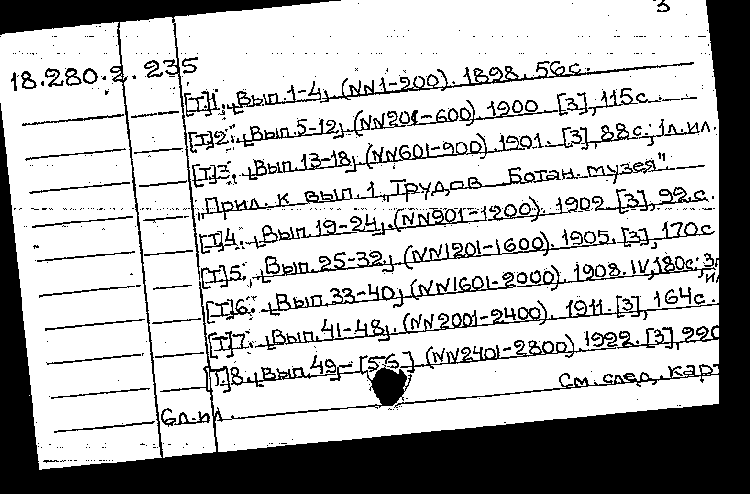 3
18.280.2.235
[Т]1. „Вып. 1-4„. (NN1-200). 1898. 56с.
[Т]2. „Вып. 5-12„. (NN201-600). 1900. [3], 115с.
[Т]3. „Вып. 13-18„. (NN601-900). 1901. [3], 88с; 1л.ил.
„Прил. к вып. 1 „Трудов Ботан. музея".
[Т]4. „Вып. 19-24„. (NN901-1200). 1902. [3], 92с.
[Т]5. „Вып. 25-32„. (NN1201-1600). 1905. [3], 170с
[Т]6. „Вып. 33-40„ (NN1601-2000). 1908. IV, 180с; 3л ил
[Т]7. „Вып. 41-48„. (NN2001-2400). 1911. [3], 164с.
[Т]8. „Вып. 49-[56]. (NN2401-2800). 1922. [3], 220
6л.ил.
См. след. карт